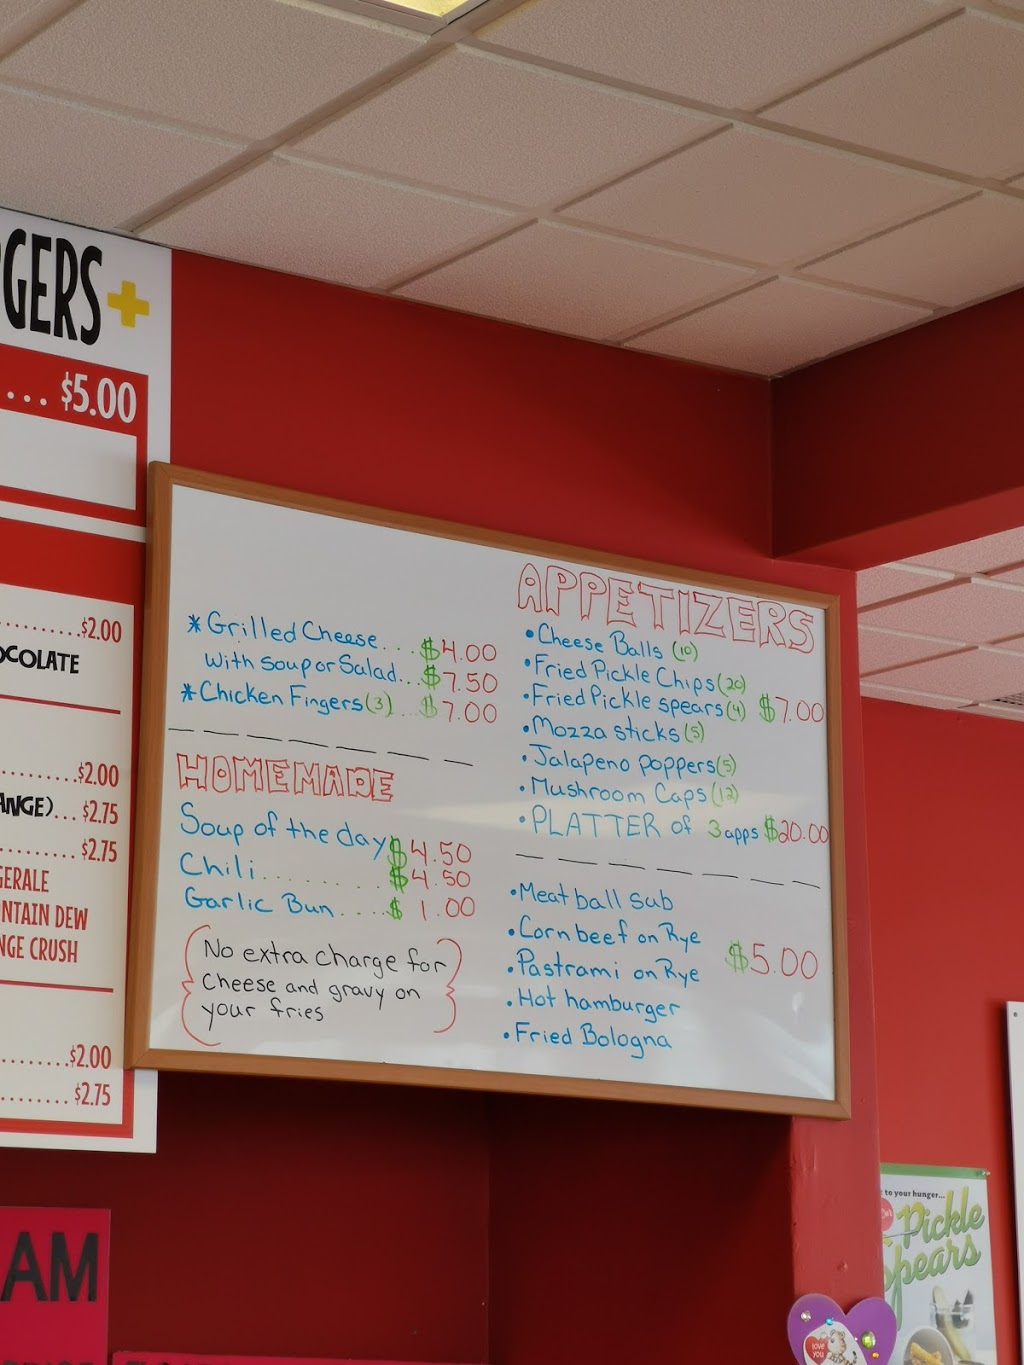 GERS+
... $5.00
..........$2.00
OCOLATE
.......$2.00
ANGE)... $2.75
.......$2.75
GERALE
NTAIN DEW
NGE CRUSH
.......$2.00
.......$2.75
AM
*Grilled Cheese... $4.00
with soup or Salad... $7.50
*Chicken Fingers (3) .. $7.00
HOMEMADE
Soup of the day $4.50
Chili......... $4.50
Garlic Bun.... $1.00
No extra charge for
Cheese and gravy on
your fries
APPETIZERS
•Cheese Balls (10)
•Fried Pickle Chips (20)
•Fried Pickle spears (4) $7.00
•Mozza sticks (5)
•Jalapeno poppers (5)
•Mushroom Caps (12)
•PLATTER of 3 apps $20.00
•Meat ball sub
•Corn beef on Rye
•Pastrami on Rye $5.00
•Hot hamburger
•Fried Bologna
to your hunger...
Pickle
Spears
love
you